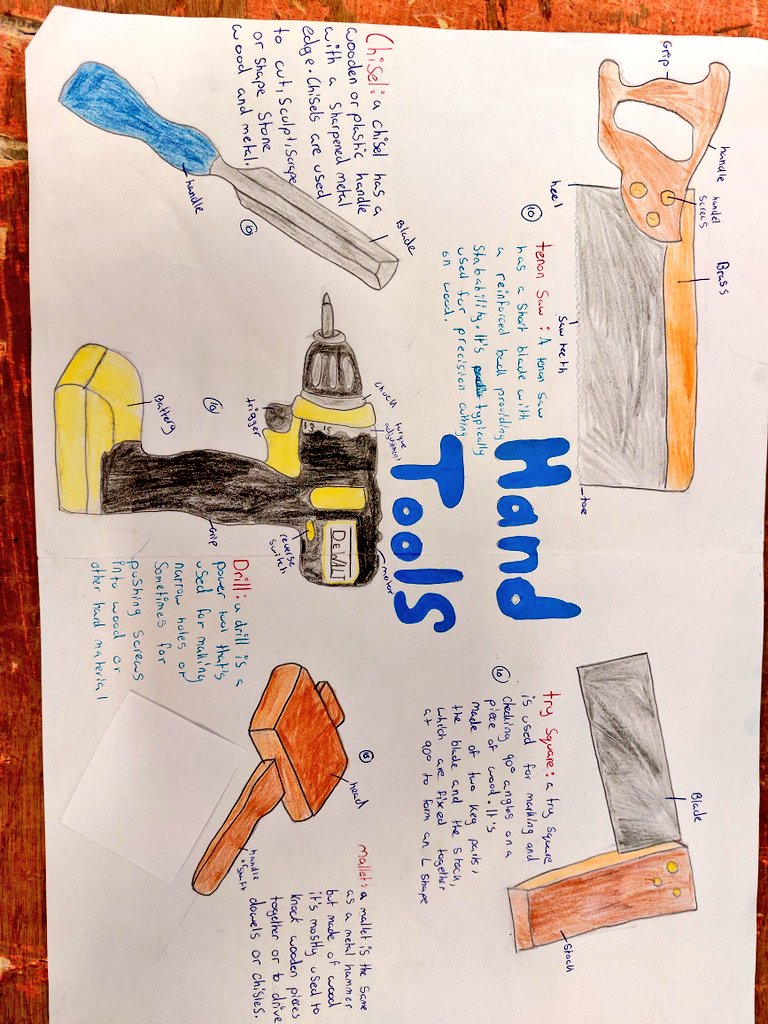 Grip
handle
handel
screws
Brass
heel
saw teeth
toe
10
tenon saw: A tenon saw
has a short blade with
a reinforced back providing
stabability. It's typically
used for precision cutting
on wood.
Hand
Tools
Blade
Stock
10
try square: a try square
is used for marking and
checking 90° angles on a
piece of wood. It's
made of two key parts,
the blade and the stock,
which are fixed together
at 90° to form an L shape
Chisel: a chisel has a
wooden or plastic handle
with a sharpened metal
edge. Chisels are used
to cut, sculpt, scrape
or shape stone
wood and metal.
Blade
handle
10
chuck
torque
adjustment
trigger
10
Battery
Grip
reverse
switch
motor
DEWALT
Drill: a drill is a
power tool that's
used for making
narrow holes or
Sometimes for
pushing screws
into wood or
other hard material
head
10
handle
or shaft
mallet: a mallet is the same
as a metal hammer
but made of wood
it's mostly used to
knock wooden pieces
together or to drive
dowels or chisles.